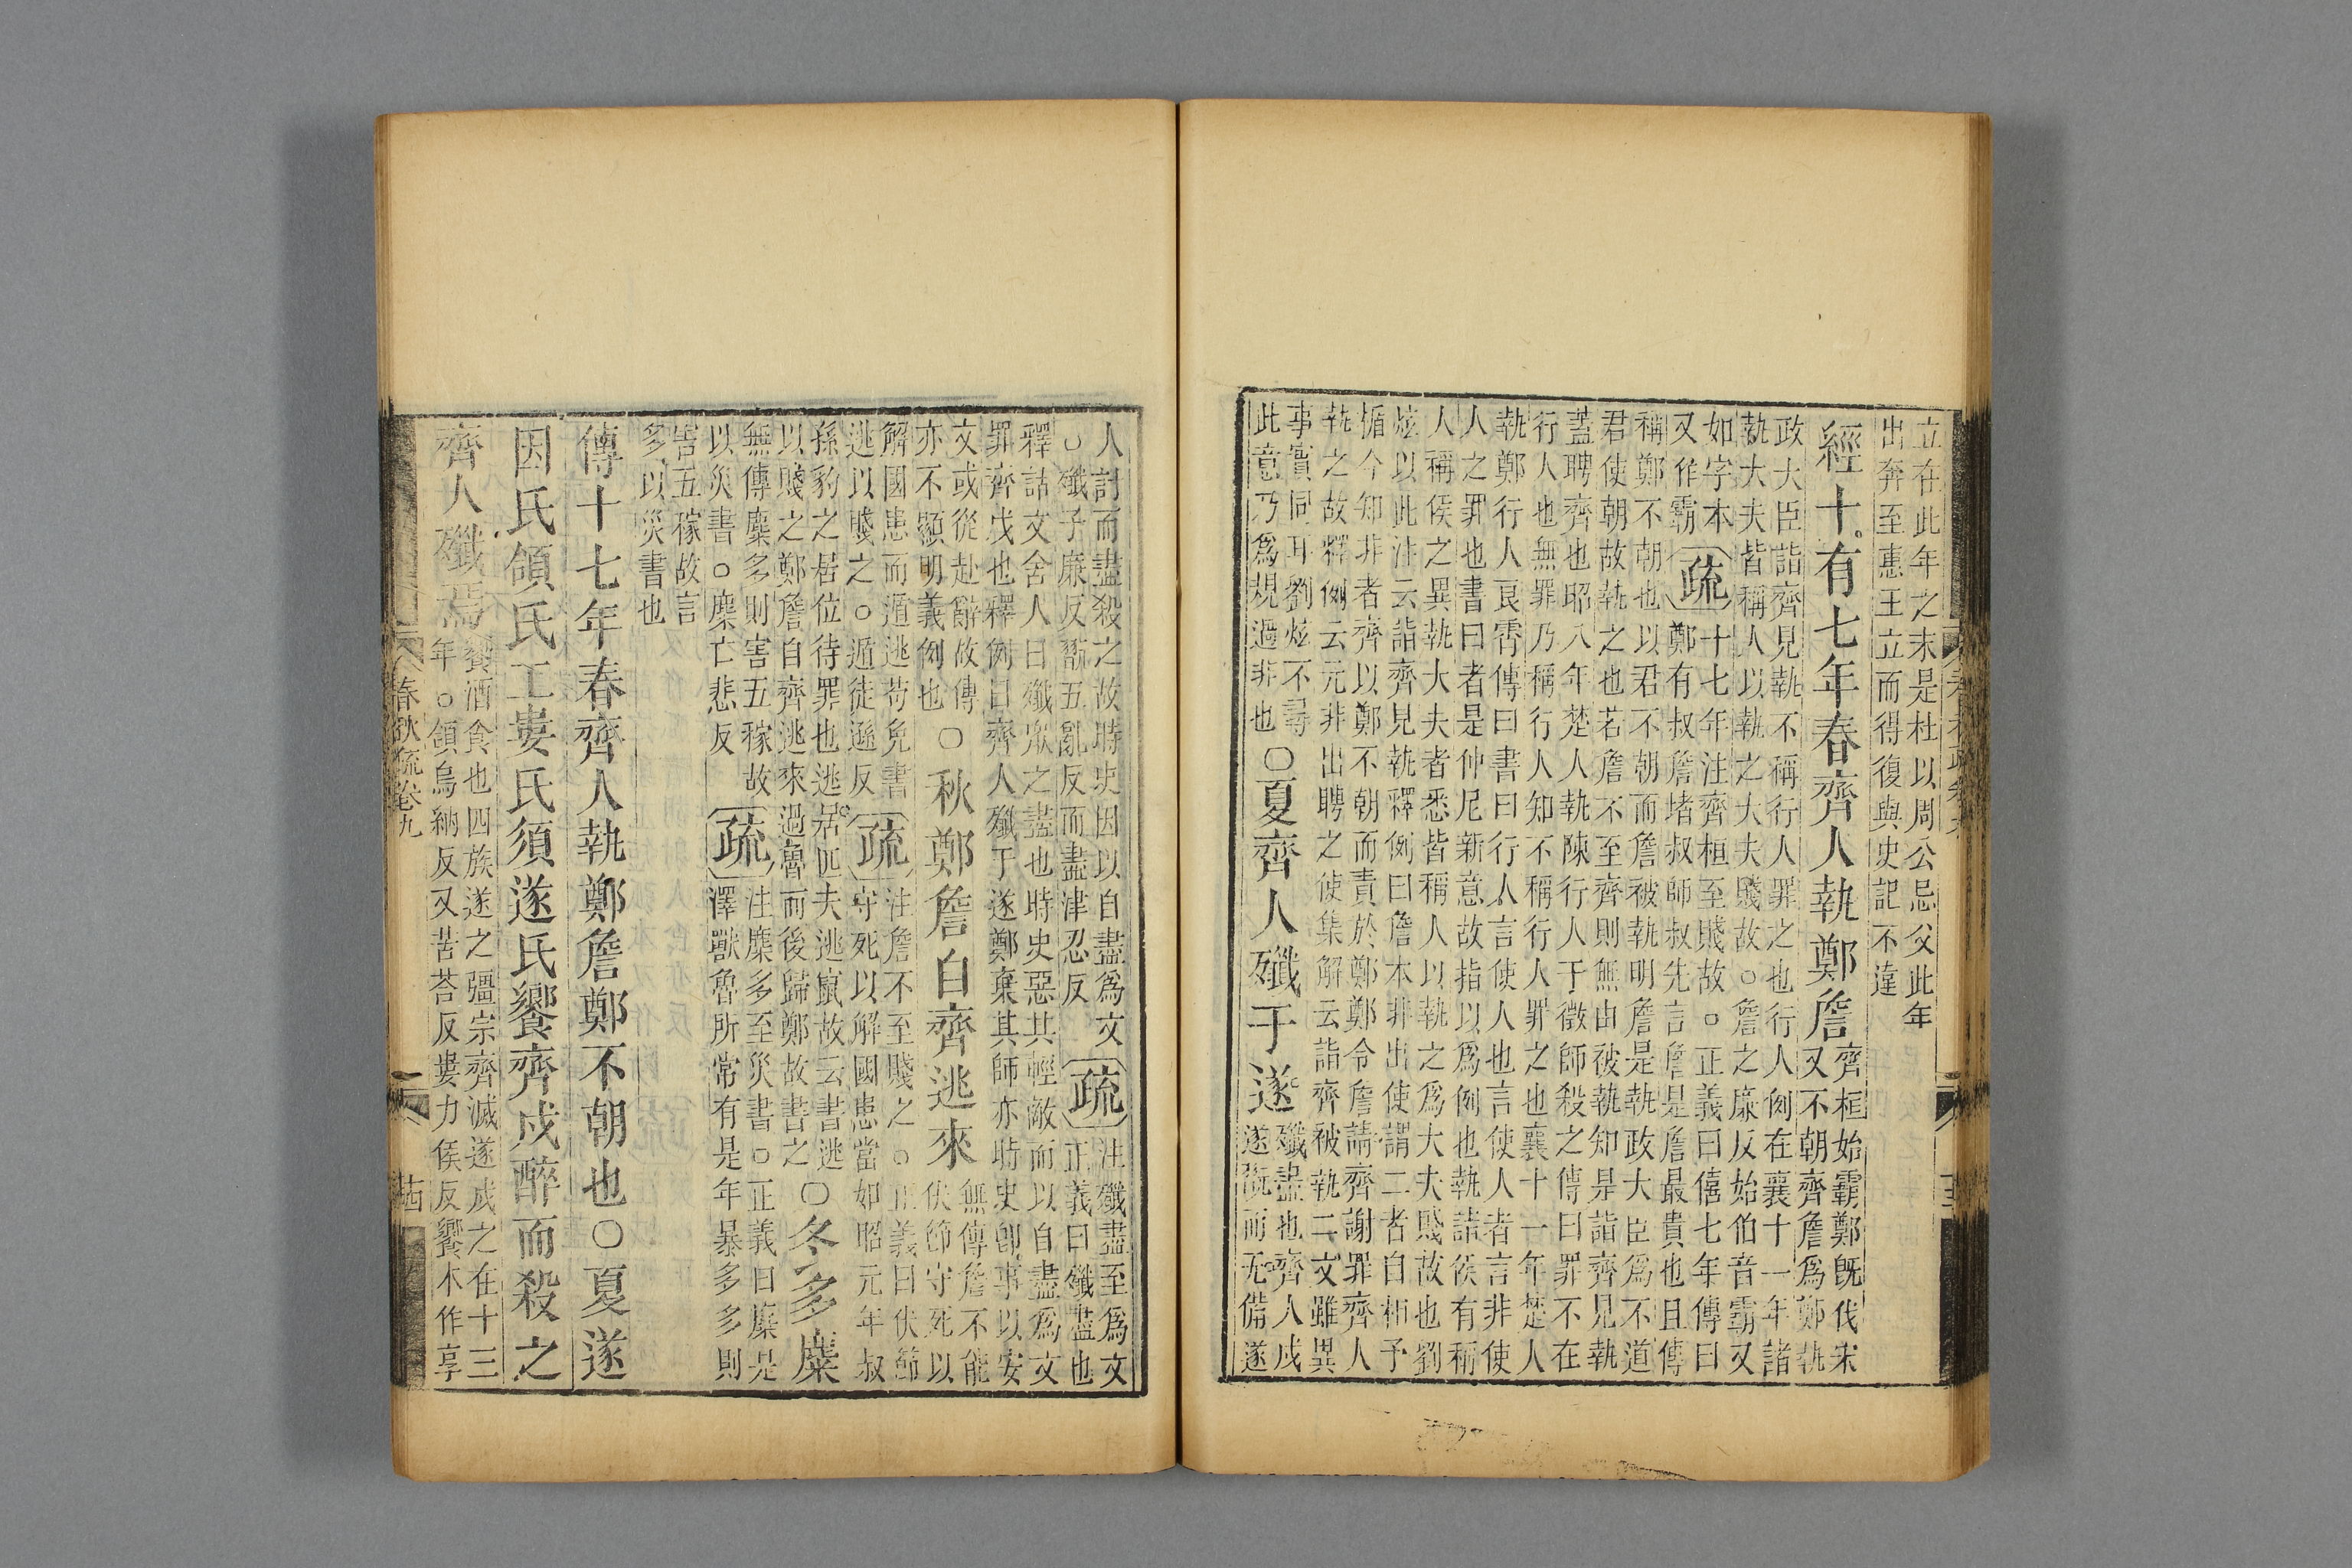 立在此年之末是杜以周公忌父此年
出奔至惠王立而得復與史記不違
經十有七年春齊人執鄭詹
齊桓始霸鄭既伐宋
又不朝齊詹爲鄭執
政大臣詣齊見執不稱行人罪之也行人例在襄十一年諸
執大夫皆稱人以執之大夫賤故○詹之廉反始伯音霸又
如字本
又作霸
疏
十七年注齊桓至賤故○正義曰僖七年傳曰
鄭有叔詹堵叔師叔先言詹是詹最貴也且傳
稱鄭不朝也以君不朝而詹被執明詹是執政大臣爲不道
君使朝故執之也若詹不至齊則無由被執知是詣齊見執
蓋聘齊也昭八年楚人執陳行人于徵師殺之傳曰罪不在
行人也無罪乃稱行人知不稱行人罪之也襄十一年楚人
執鄭行人良霄傳曰書曰行人言使人也言使人者言非使
人之罪也書曰者是仲尼新意故指以爲例也執諸侯有稱
人稱侯之異執大夫者悉皆稱人以執之爲大夫賤故也劉
炫以此注云詣齊見執釋例曰詹本非出使謂二者自相矛
楯今知非者齊以鄭不朝而責於鄭鄭令詹請齊謝罪齊人
執之故釋例云元非出聘之使集解云詣齊被執二文雖異
事實同耳劉炫不尋
此意乃爲規過非也
○夏齊人殲于遂
殲盡也齊人戍
遂翫而无備遂
人討而盡殺之故時史因以自盡爲文
○殲子廉反翫五亂反而盡津忍反
疏
注殲盡至爲文
正義曰殲盡也
釋詁文舍人曰殲眾之盡也時史惡其輕敵而以自盡爲文
罪齊戍也釋例曰齊人殲于遂鄭棄其師亦時史即事以安
文或從赴辭故傳
亦不顯明義例也
○秋鄭詹自齊逃來
無傳詹不能
伏節守死以
解國患而遁逃苟免書
逃以賤之○遁徒遜反
疏
注詹不至賤之○正義曰伏節
守死以解國患當如昭元年叔
孫豹之居位待罪也逃居匹夫逃竄故云書逃
以賤之鄭詹自齊逃來過魯而後歸鄭故書之
○冬多麋
無傳麋多則害五稼故
以災書○麋亡悲反
疏
注麋多至災書○正義曰麋是
澤獸魯所常有是年暴多多則
害五稼故言
多以災書也
傳十七年春齊人執鄭詹鄭不朝也○夏遂
因氏頜氏工婁氏須遂氏饗齊戍醉而殺之
齊人殲焉
饗酒食也四族遂之彊宗齊滅遂戍之在十三
年○頜烏納反又苦荅反婁力侯反饗本作享
春秋疏卷九